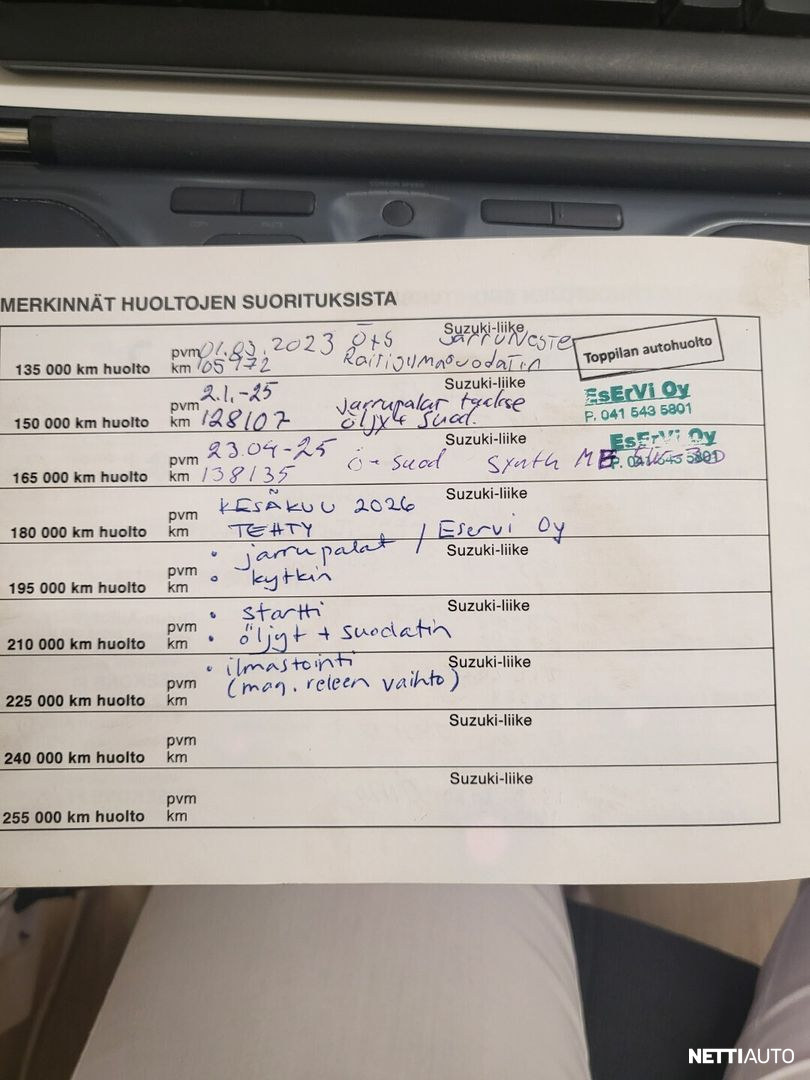 MERKINNÄT HUOLTOJEN SUORITUKSISTA
Suzuki-liike
135 000 km huolto pvm 01.03.2023 Ö+S Jarruneste
km 105972 Raitisilmasuodatin
Toppilan autohuolto
Suzuki-liike
150 000 km huolto pvm 2.1.-25 jarrupalat taakse
km 128107 öljy + suod.
EsErVi Oy
P. 041 543 5801
Suzuki-liike
165 000 km huolto pvm 23.04-25
km 138135 ö-suod Synth
EsErVi Oy
P. 041 543 5801
Suzuki-liike
180 000 km huolto pvm KESÄKUU 2026
km TEHTY / Eservi Oy
Suzuki-liike
195 000 km huolto pvm • jarrupalat
km • kytkin
Suzuki-liike
210 000 km huolto pvm • startti
km • öljyt + suodatin
Suzuki-liike
225 000 km huolto pvm • ilmastointi
km (mag. releen vaihto)
Suzuki-liike
240 000 km huolto pvm
km
Suzuki-liike
255 000 km huolto pvm
km
NETTIAUTO